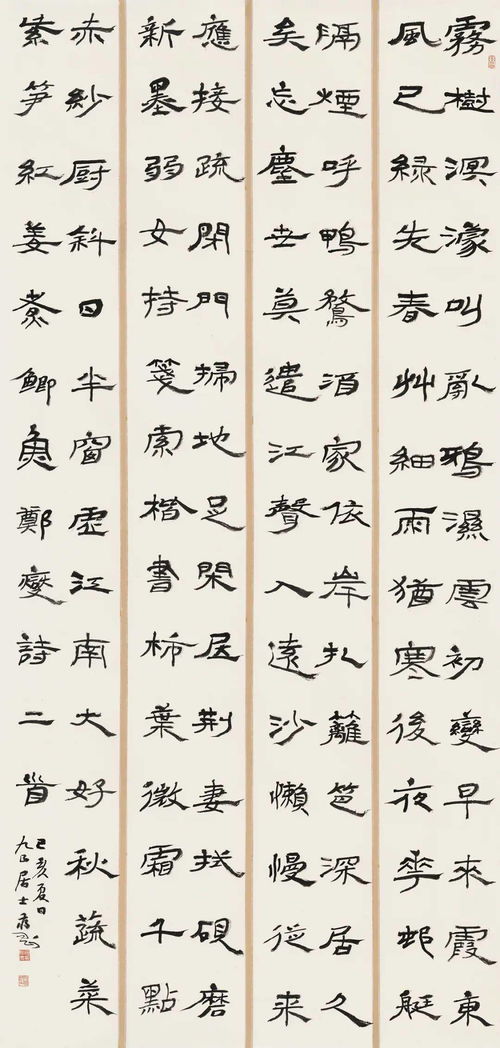 霧樹溟濛叫亂鴉濕雲初變早來霞東
風已綠先春艸細雨猶寒後夜華邨艇
隔煙呼鴨鶩酒家依岸扎籬笆深居久
矣忘塵世莫遣江聲入遠沙懶慢從來
應接疏閉門掃地足閑居荊妻拭硯磨
新墨弱女持箋索楷書柿葉微霜千點
赤紗厨斜日半窗虛江南大好秋蔬菜
紫笋紅姜煮鯽魚鄭燮詩二首
己亥夏日
居士